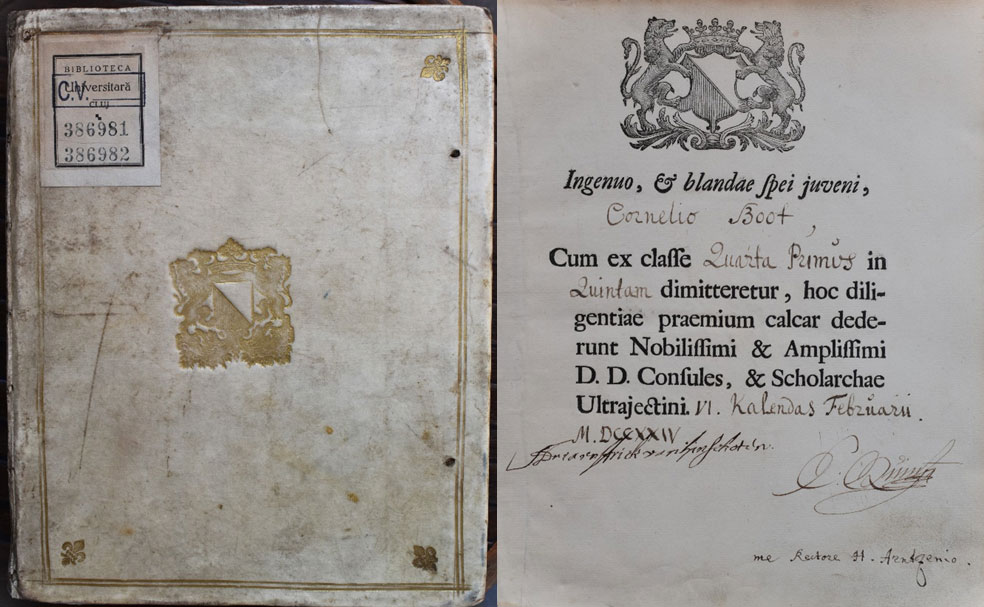 BIBLIOTECA
C.V.
Universitară
CLUJ
386981
386982
Ingenuo, & blandae ſpei juveni,
Cornelio Boot,
Cum ex claſſe Quarta Primus in
Quintam dimitteretur, hoc dili-
gentiae praemium calcar dede-
runt Nobiliſſimi & Ampliſſimi
D. D. Conſules, & Scholarchae
Ultrajectini. VI. Kalendas Februarii.
M. DCCXXIV
me Rectore H. Arntzenio.